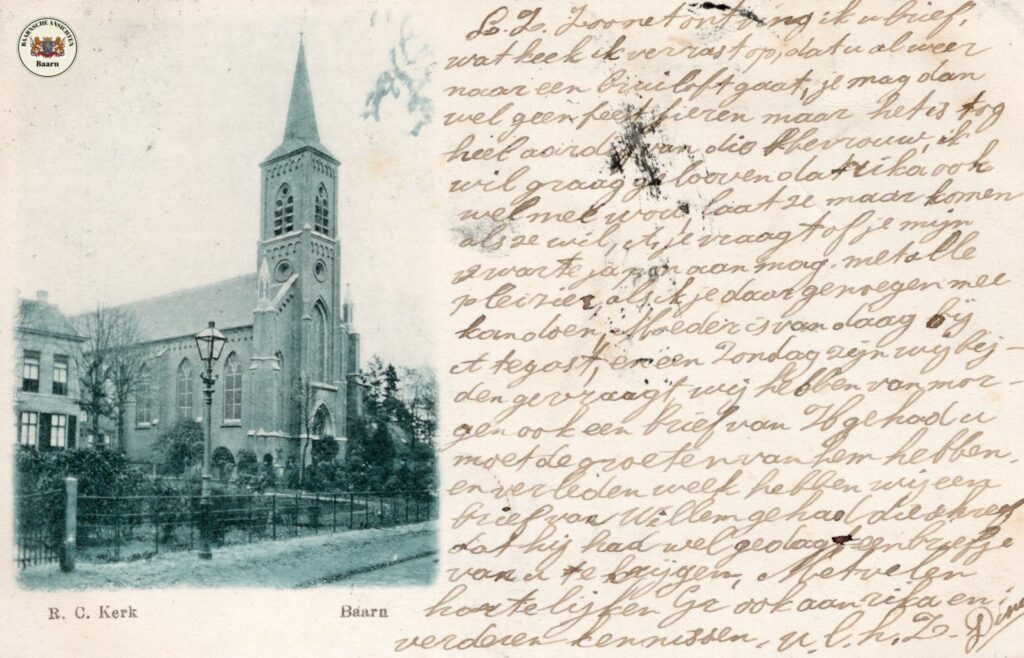 BAARNSCHE ANSICHTEN
Baarn
L. Z. Zoo net ontving ik u brief,
wat keek ik verrast op, dat u al weer
naar een bruiloft gaat, je mag dan
wel geen feest fieren maar het is tog
heel aardig van die Bevrouw, ik
wil graag gelooven dat rika ook
wel mee wou, laat ze maar komen
als ze wil, je vraagt of je mijn
zwarte japon aan mag. met alle
pleizier als ik je daar genoegen mee
kan doen, Moeder is van daag bij
te gast, en een Zondag zijn wij bij-
den gevraagt, wij hebben van mor-
gen ook een brief van H gehad u
moet de groeten van hem hebben.
en verleden week hebben wij een
brief van Willem gehad die skreef
dat hij had wel gedagt een briefje
van u te krijgen, Met velen
hartelijken Gr ook aan rika en
verderen kennissen, u. l. h, Z. Dina
R. C. Kerk
Baarn